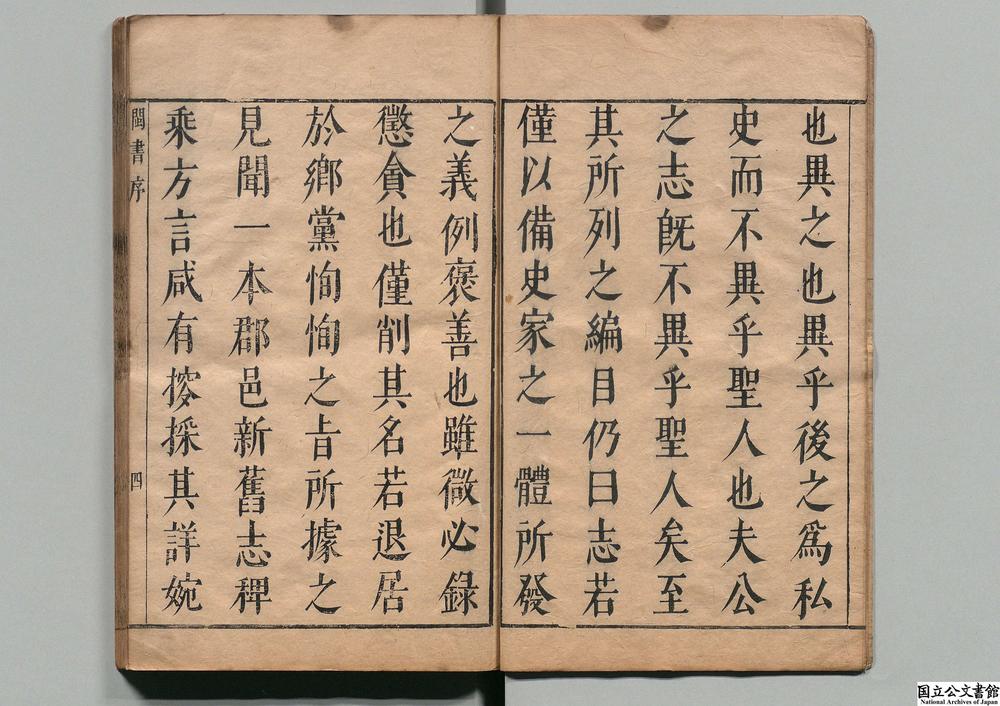 也異之也異乎後之爲私
史而不異乎聖人也夫公
之志旣不異乎聖人矣至
其所列之編目仍曰志若
僅以備史家之一體所發
之義例褒善也雖微必錄
懲貪也僅削其名若退居
於鄉黨恂恂之㫖所據之
見聞一本郡邑新舊志稗
乘方言咸有搜採其詳婉
閩書序
四
国立公文書館
National Archives of Japan